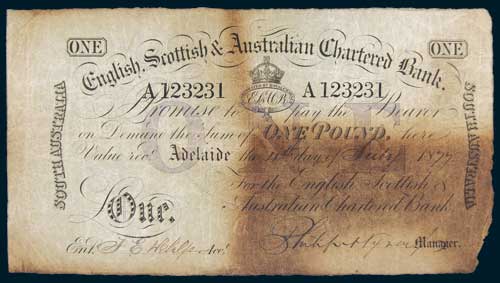 ONE ONE
English, Scottish & Australian Chartered Bank.
A123231 A123231
I Promise to pay the Bearer
on Demand the Sum of ONE POUND, here
Value recd. Adelaide the day of July 1877
For the English, Scottish &
Australian Chartered Bank
£ One.
Entd. Acct. Manager.
SOUTH AUSTRALIA
SOUTH AUSTRALIA
ONE